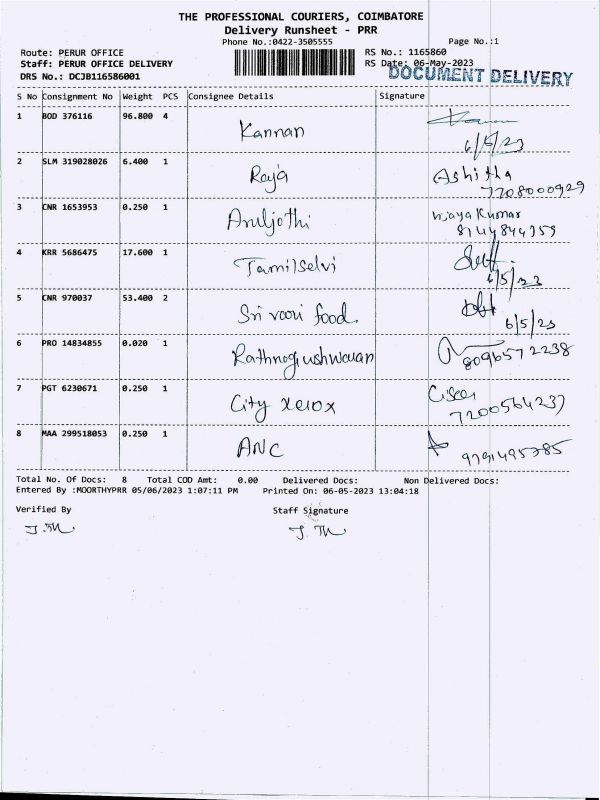 THE PROFESSIONAL COURIERS, COIMBATORE
Delivery Runsheet - PRR
Phone No.:0422-3505555 Page No.:1
Route: PERUR OFFICE RS No.: 1165860
Staff: PERUR OFFICE DELIVERY RS Date: 06-May-2023
DRS No.: DCJB116586001 DOCUMENT DELIVERY
S No Consignment No Weight PCS Consignee Details Signature
1 BOD 376116 96.800 4 Kannan
6/5/23
2 SLM 319028026 6.400 1 Raja Ashitha
7708000929
3 CNR 1653953 0.250 1 Aruljothi Vijaya Kumar
4 KRR 5686475 17.600 1 Tamilselvi
6/5/23
5 CNR 970037 53.400 2 Sri vaari food.
6/5/23
6 PRO 14834855 0.020 1
8096572238
7 PGT 6230671 0.250 1 City xerox
7200564237
8 MAA 299518053 0.250 1 ANC
9791495785
Total No. Of Docs: 8 Total COD Amt: 0.00 Delivered Docs: Non Delivered Docs:
Entered By :MOORTHYPRR 05/06/2023 1:07:11 PM Printed On: 06-05-2023 13:04:18
Verified By Staff Signature